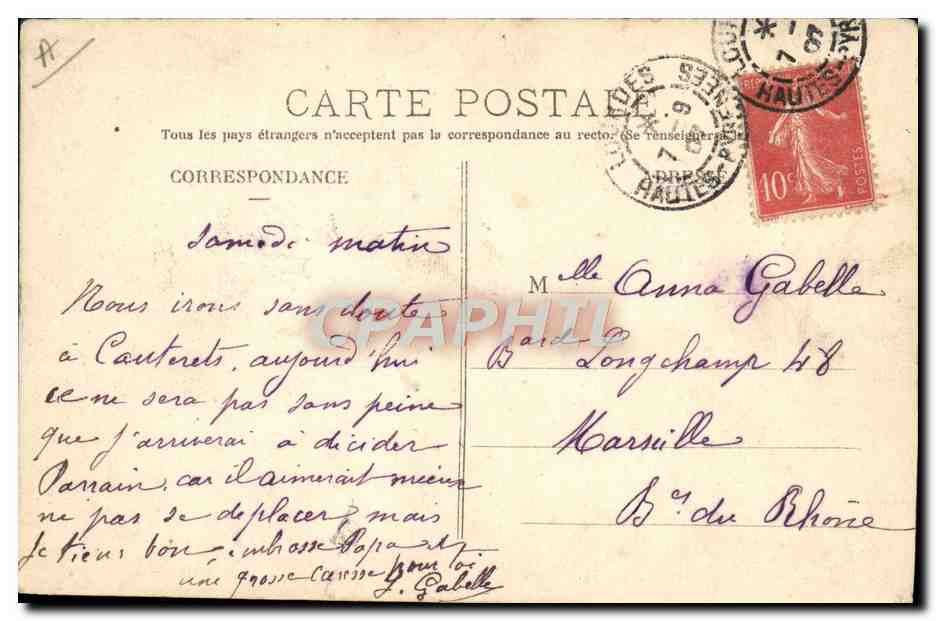 A
CARTE POSTALE
Tous les pays étrangers n'acceptent pas la correspondance au recto. (Se renseigner
CORRESPONDANCE
LOURDES
HAUTES-PYRENEES
HAUTES-PYR
10c
POSTES
samedi matin
Nous irons sans doute
à Cauterets, aujourd'hui
ce ne sera pas sans peine
que j'arriverai à décider
Parrain, car il aimerait mieux
ne pas se déplacer, mais
je tiens bon, embrasse Papa et
une grosse caresse pour toi
J. Gabelle
Melle Anna Gabelle
Bard Longchamp 48
Marseille
Bes du Rhône
CPAPHIL